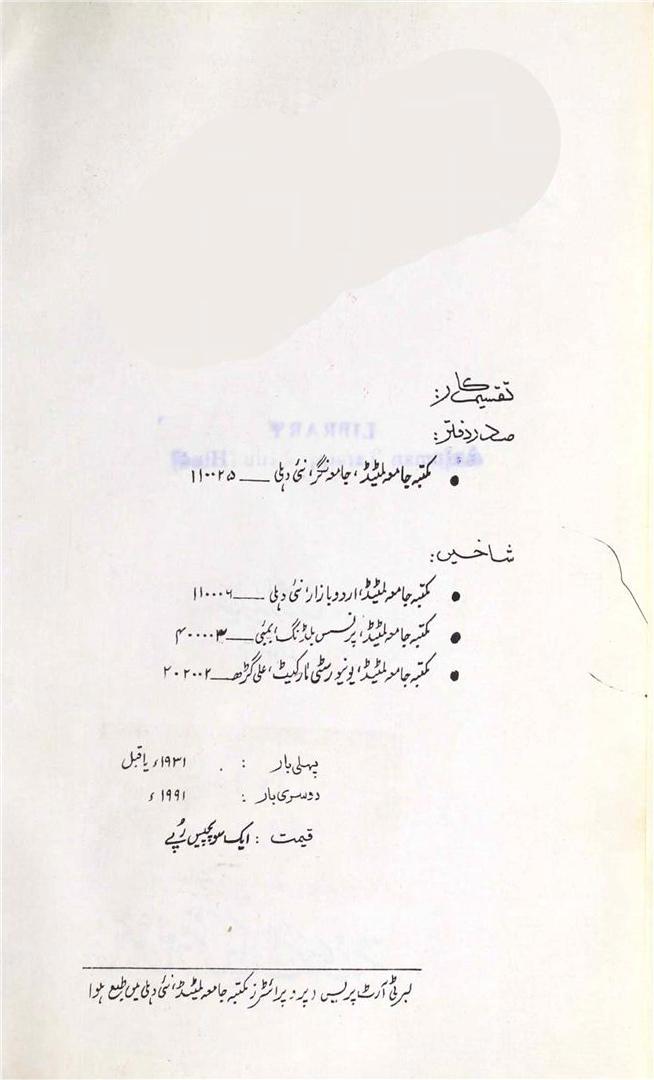 تقسیم کار:
صدر دفتر:
● مکتبہ جامعہ لمیٹڈ، جامعہ نگر، نئی دہلی ــــ ۱۱۰۰۲۵
شاخیں:
● مکتبہ جامعہ لمیٹڈ، اردو بازار، نئی دہلی ــــ ۱۱۰۰۰۶
● مکتبہ جامعہ لمیٹڈ، پرنسس بلڈنگ، بمبئی ــــ ۴۰۰۰۰۳
● مکتبہ جامعہ لمیٹڈ، یونیورسٹی مارکیٹ، علی گڑھ ــــ ۲۰۲۰۰۲
پہلی بار : ۱۹۳۱ء یا قبل
دوسری بار : ۱۹۹۱ء
قیمت : ایک سو پچیس روپے
لبرٹی آرٹ پریس (پروپرائٹرز مکتبہ جامعہ لمیٹڈ، نئی دہلی میں طبع ہوا
LIBRARY